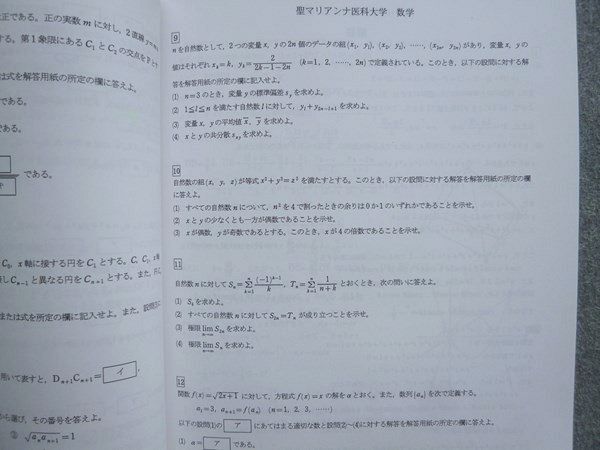 聖マリアンナ医科大学 数学
正である。正の実数 m に対し、2直線 y=m
する。第1象限にある C₁ と C₂ の交点を P とす
は式を解答用紙の所定の欄に答えよ。
である。
である。
である。
C₀, x 軸に接する円を C₁ とする。C, C₁, x 軸
接し Cₙ₋₁ と異なる円を Cₙ₊₁ とする。また、円
または式を所定の欄に記入せよ。また、設問
用いて表すと、Dₙ₊₁Cₙ₊₁= イ
から選び、その番号を答えよ。
② √(aₙaₙ₊₁)=1
9
n を自然数として、2つの変量 x, y の 2n 個のデータの組 (x₁, y₁), (x₂, y₂), ……, (x₂ₙ, y₂ₙ) があり、変量 x, y の
値はそれぞれ xₖ=k, yₖ=2/(2k−1−2n) (k=1, 2, ……, 2n) で定義されている。このとき、以下の設問に対する解
答を解答用紙の所定の欄に記入せよ。
(1) n=3 のとき、変量 y の標準偏差 s_y を求めよ。
(2) 1≦l≦n を満たす自然数 l に対して、yₗ+y₂ₙ₋ₗ₊₁ を求めよ。
(3) 変量 x, y の平均値 x̄, ȳ を求めよ。
(4) x と y の共分散 s_xy を求めよ。
10
自然数の組 (x, y, z) が等式 x²+y²=z² を満たすとする。このとき、以下の設問に対する解答を解答用紙の所定の欄
に答えよ。
(1) すべての自然数 n について、n² を 4 で割ったときの余りは 0 か 1 のいずれかであることを示せ。
(2) x と y の少なくとも一方が偶数であることを示せ。
(3) x が偶数、y が奇数であるとする。このとき、x が 4 の倍数であることを示せ。
11
自然数 n に対して Sₙ=Σₖ₌₁ⁿ (−1)ᵏ⁻¹/k, Tₙ=Σₖ₌₁ⁿ 1/(n+k) とおくとき、次の問いに答えよ。
(2) すべての自然数 n に対して S₂ₙ=Tₙ が成り立つことを示せ。
(3) 極限 lim n→∞ S₂ₙ を求めよ。
(4) 極限 lim n→∞ Sₙ を求めよ。
12
関数 f(x)=√(2x+1) に対して、方程式 f(x)=x の解を α とおく。また、数列 {aₙ} を次で定義する。
a₁=3, aₙ₊₁=f(aₙ) (n=1, 2, 3, ……)
以下の設問(1)の ア にあてはまる適切な数と設問(2)~(4)に対する解答を解答用紙の所定の欄に答えよ。
(1) α= ア である。